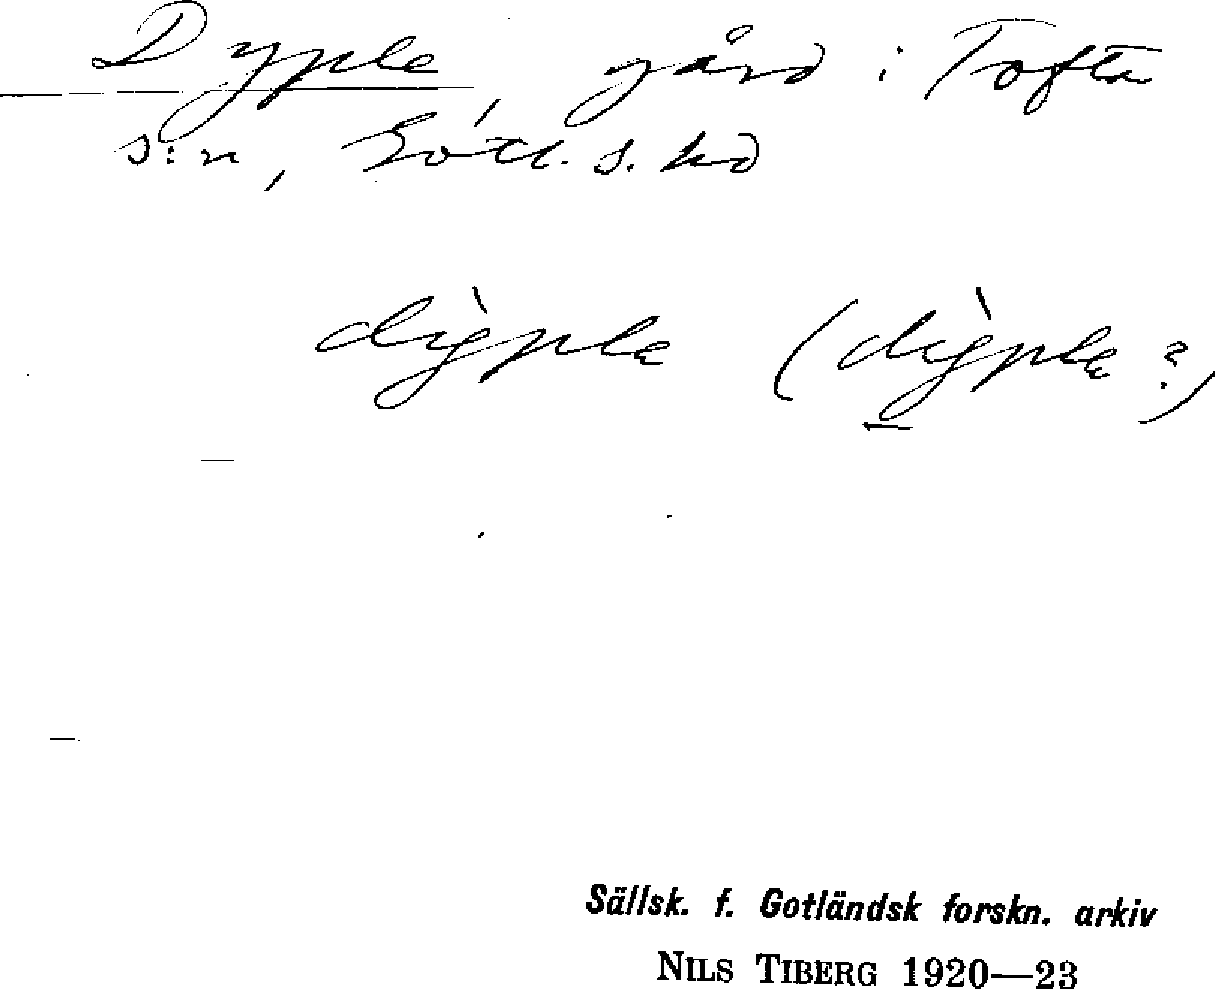 Dyple, gård i Tofta
s:n, Gotl. s. hd
dỳple (dỳple?)
Sällsk. f. Gotländsk forskn. arkiv
NILS TIBERG 1920—23